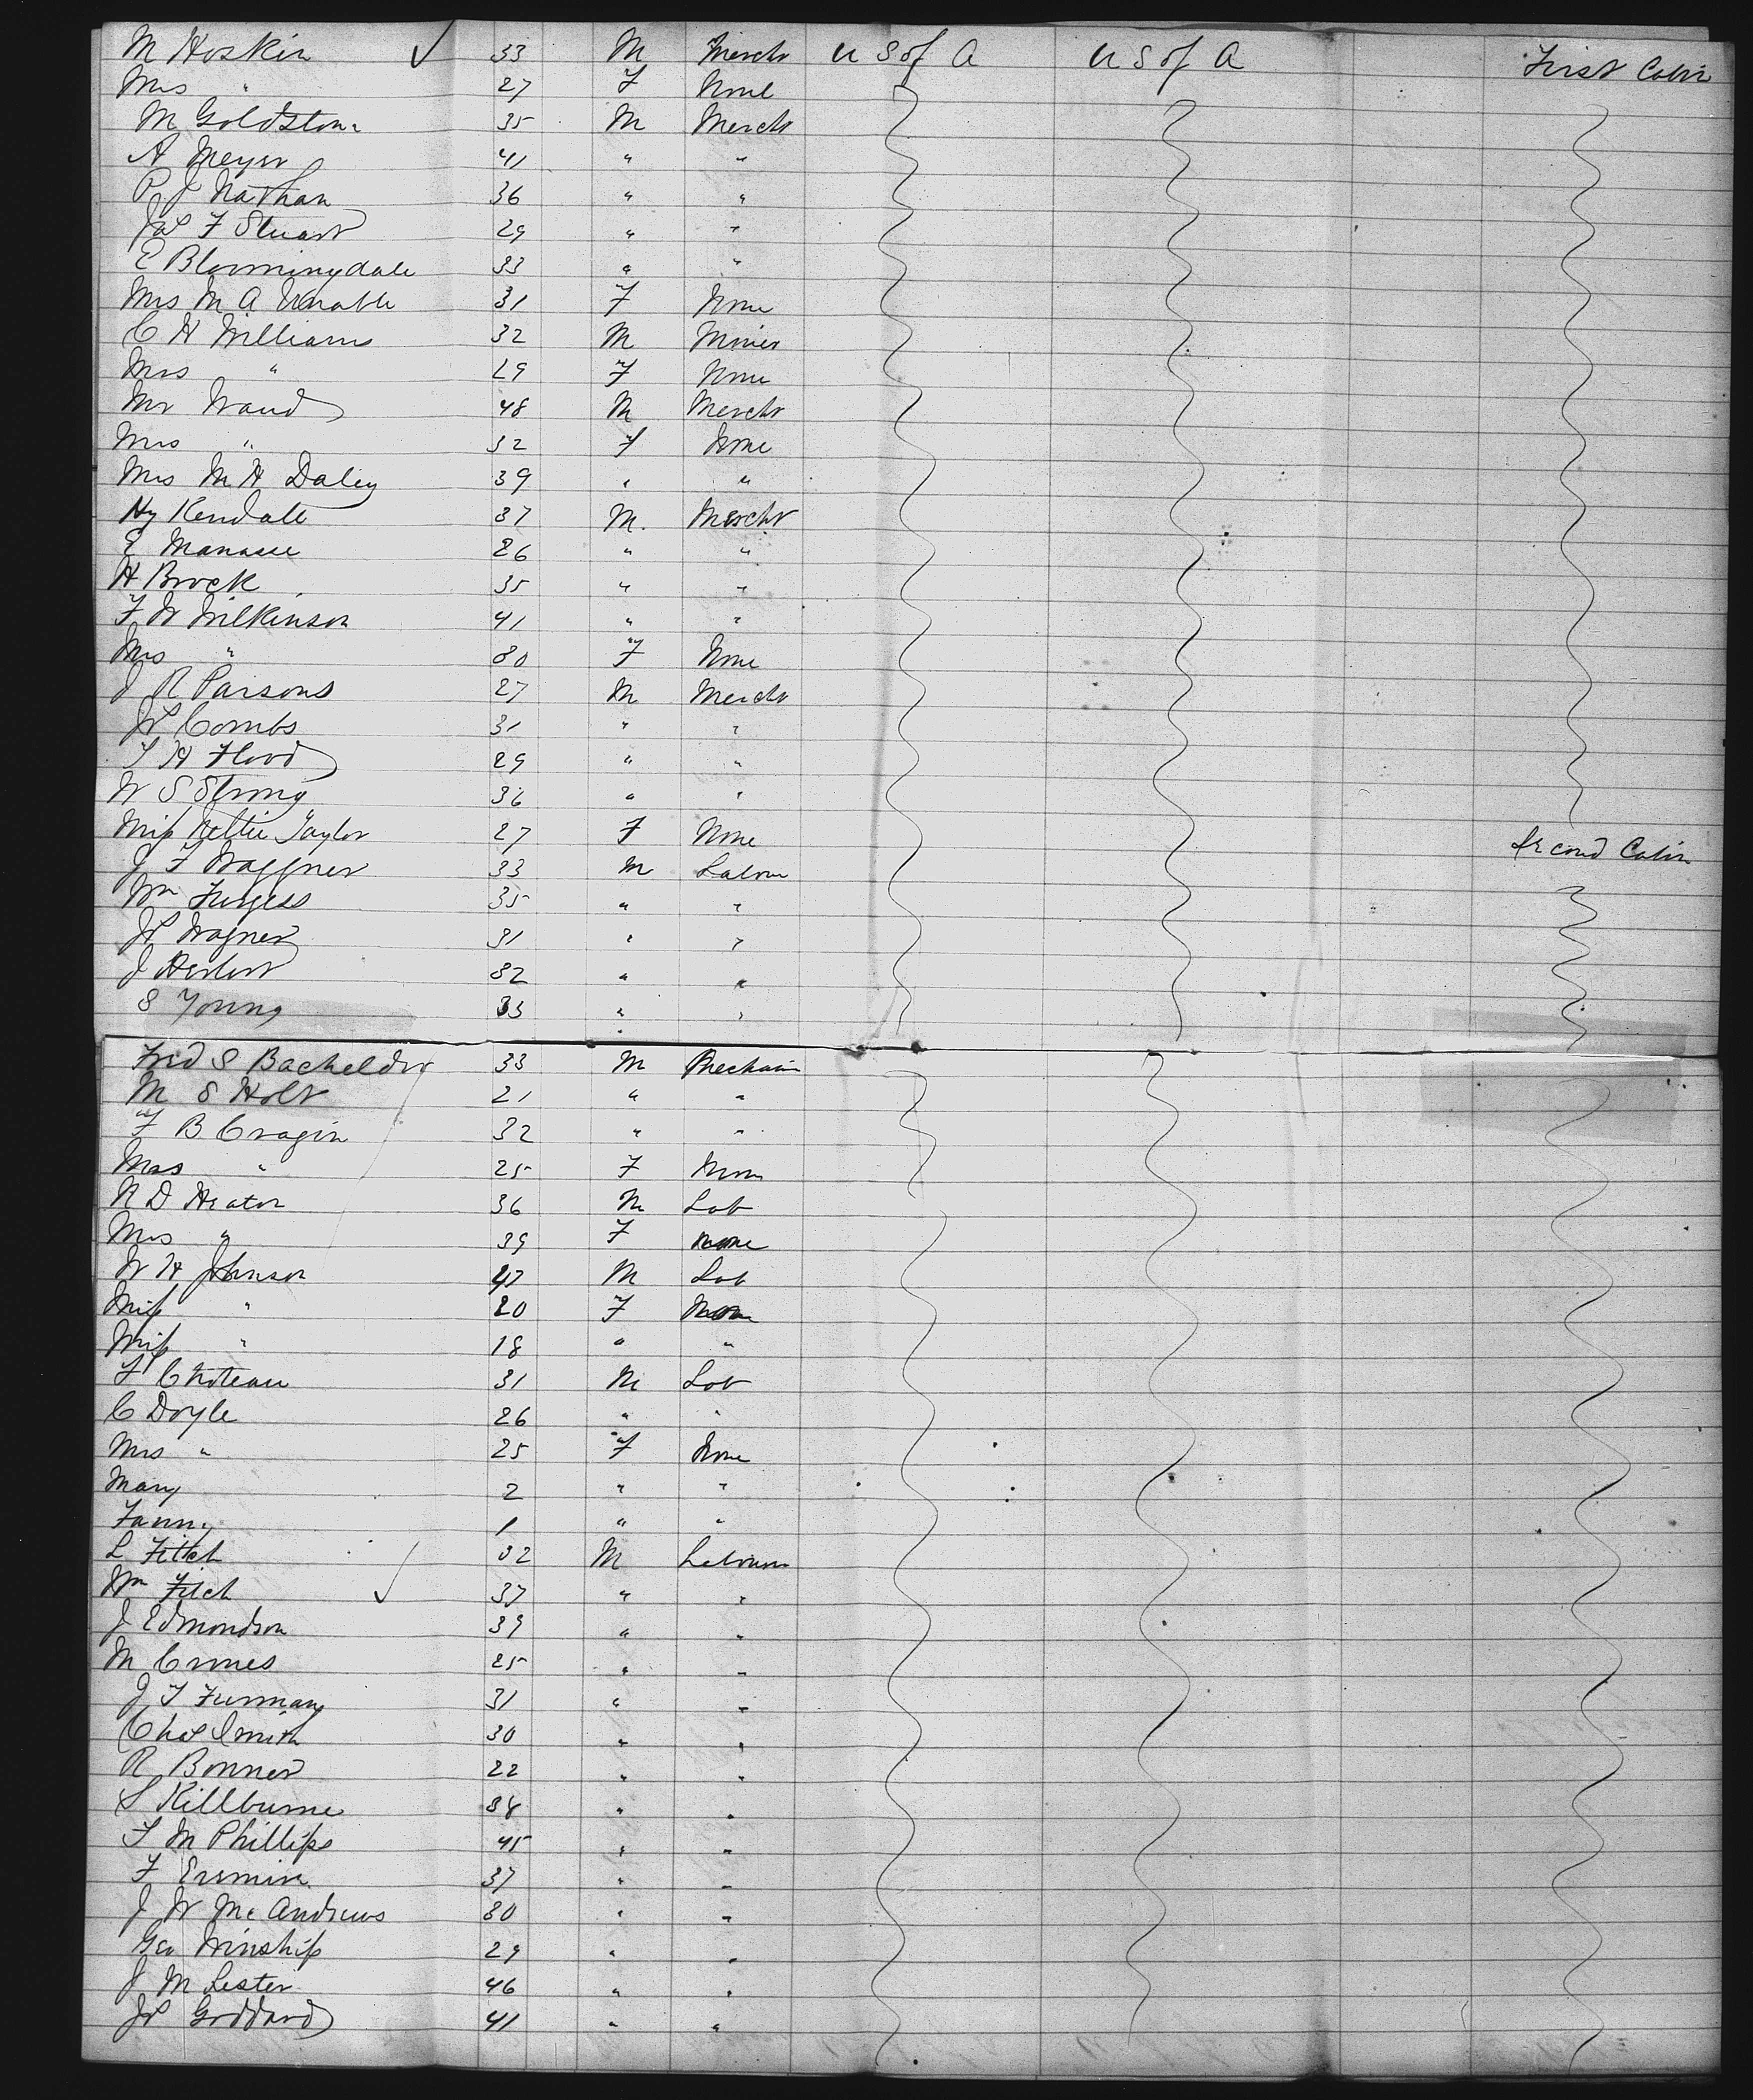 M Hoskin ✓ 33 M Mercht U S of A U S of A First Cabin
Mrs " 27 F None
M Goldstone 35 M Mercht
A Meyer 41 " "
P J Nathan 36 " "
Jas F Stuart 29 " "
E Bloomingdale 33 " "
Mrs M A Venable 31 F None
C H Williams 32 M Miner
Mrs " 29 F None
Mr Wand 48 M Mercht
Mrs " 32 F None
Mrs M H Daley 39 " "
Hy Kendall 37 M. Mercht
E Manasse 26 " "
H Brock 35 " "
F W Wilkinson 41 " "
Mrs " 30 F None
J R Parsons 27 M Mercht
Combs 31 " "
T H Flood 29 " "
W S Strong 36 " "
Miss Nettie Taylor 27 F None Second Cabin
J F Waggner 33 M Labour
Wm Furgess 35 " "
Wagner 31 " "
J Herbert 32 " "
S Young 33 " "
Fred S Bachelder 33 M Mechanic
M S Holt 21 " "
F B Cragin 32 " "
Mrs " 25 F None
R D Heaton 36 M Lab
Mrs " 39 F None
W H Johnson 47 M Lab
Miss " 20 F None
Miss " 18 " "
F Choteau 31 M Lab
C Doyle 26 " "
Mrs " 25 F None
Mary 2 " "
Fanny 1 " "
L Fitch 32 M Labourer
Wm Fitch ✓ 37 " "
J Edmondson 39 " "
M Crones 25 " "
J T Furman 31 " "
Chas Smith 30 " "
R Bonner 22 " "
S Killburne 38 " "
F M Phillips 45 " "
F Ermin 37 " "
J W McAndrews 30 " "
Geo Winship 29 " "
J M Lester 46 " "
Goddard 41 " "